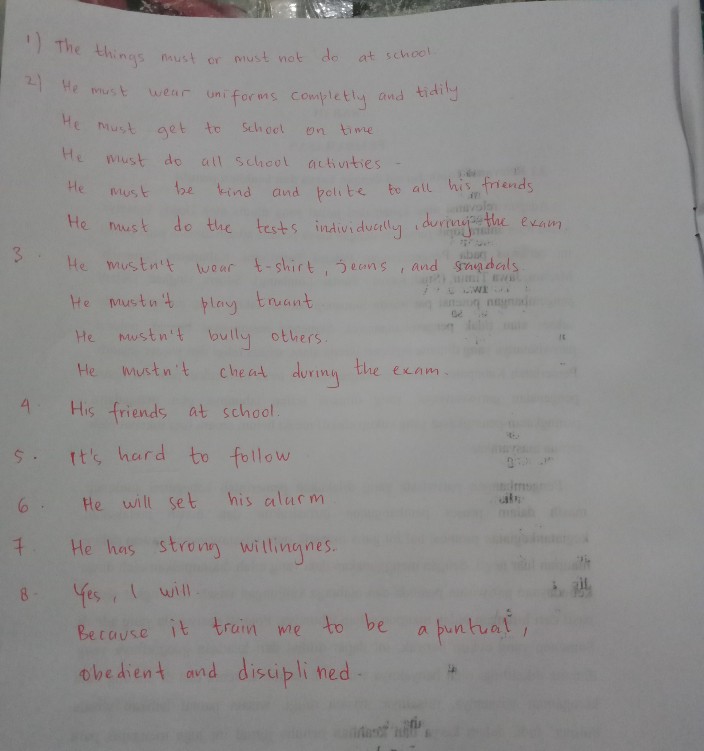 1) The things must or must not do at school
2) He must wear uniforms completly and tidily
He must get to school on time
He must do all school activities -
He must be kind and polite to all his friends
He must do the tests individually, during the exam.
3. He mustn't wear t-shirt, jeans, and sandals
He mustn't play truant
He mustn't bully others.
He mustn't cheat during the exam.
4. His friends at school.
5. It's hard to follow
6. He will set his alarm
7. He has strong willingnes.
8. Yes, I will.
Because it train me to be a puntual,
obedient and disciplined.